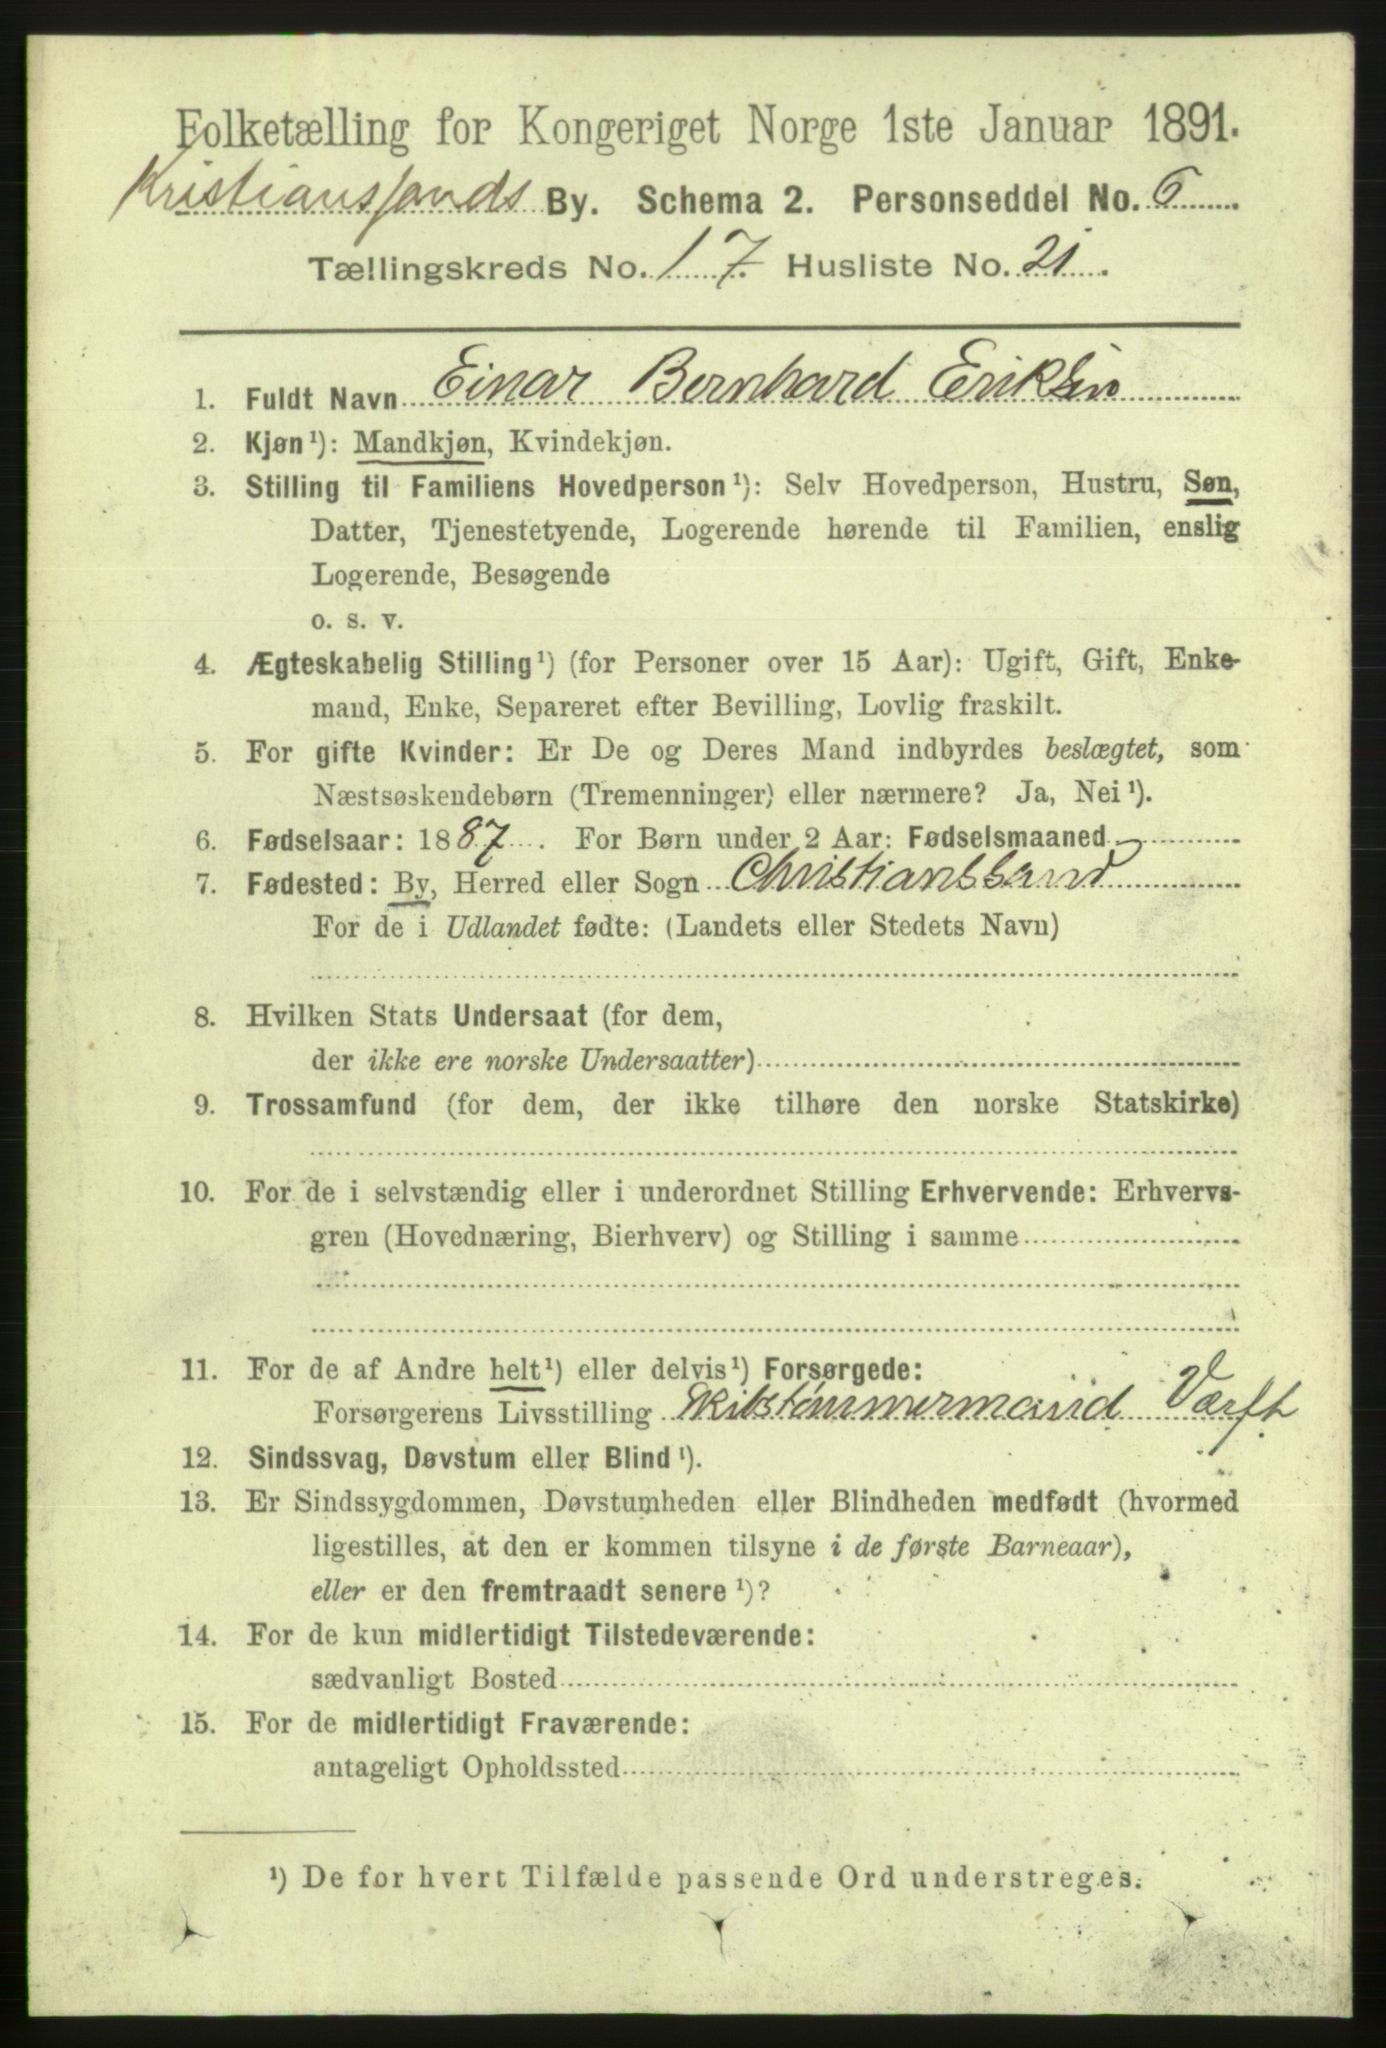 Folketælling for Kongeriget Norge 1ste Januar 1891.
Kristianssands By. Schema 2. Personseddel No. 6
Tællingskreds No. 17. Husliste No. 21.
1. Fuldt Navn Einar Bernhard Eriksen
2. Kjøn¹): Mandkjøn, Kvindekjøn.
3. Stilling til Familiens Hovedperson¹): Selv Hovedperson, Hustru, Søn,
Datter, Tjenestetyende, Logerende hørende til Familien, enslig
Logerende, Besøgende
o. s. v.
4. Ægteskabelig Stilling¹) (for Personer over 15 Aar): Ugift, Gift, Enke-
mand, Enke, Separeret efter Bevilling, Lovlig fraskilt.
5. For gifte Kvinder: Er De og Deres Mand indbyrdes beslægtet, som
Næstsøskendebørn (Tremenninger) eller nærmere? Ja, Nei¹).
6. Fødselsaar: 1887. For Børn under 2 Aar: Fødselsmaaned
7. Fødested: By, Herred eller Sogn Christianssand
For de i Udlandet fødte: (Landets eller Stedets Navn)
8. Hvilken Stats Undersaat (for dem,
der ikke ere norske Undersaatter)
9. Trossamfund (for dem, der ikke tilhøre den norske Statskirke)
10. For de i selvstændig eller i underordnet Stilling Erhvervende: Erhvervs-
gren (Hovednæring, Bierhverv) og Stilling i samme
11. For de af Andre helt¹) eller delvis¹) Forsørgede:
Forsørgerens Livsstilling Skibstømmermand Værft
12. Sindssvag, Døvstum eller Blind¹).
13. Er Sindssygdommen, Døvstumheden eller Blindheden medfødt (hvormed
ligestilles, at den er kommen tilsyne i de første Barneaar),
eller er den fremtraadt senere¹)?
14. For de kun midlertidigt Tilstedeværende:
sædvanligt Bosted
15. For de midlertidigt Fraværende:
antageligt Opholdssted
¹) De for hvert Tilfælde passende Ord understreges.